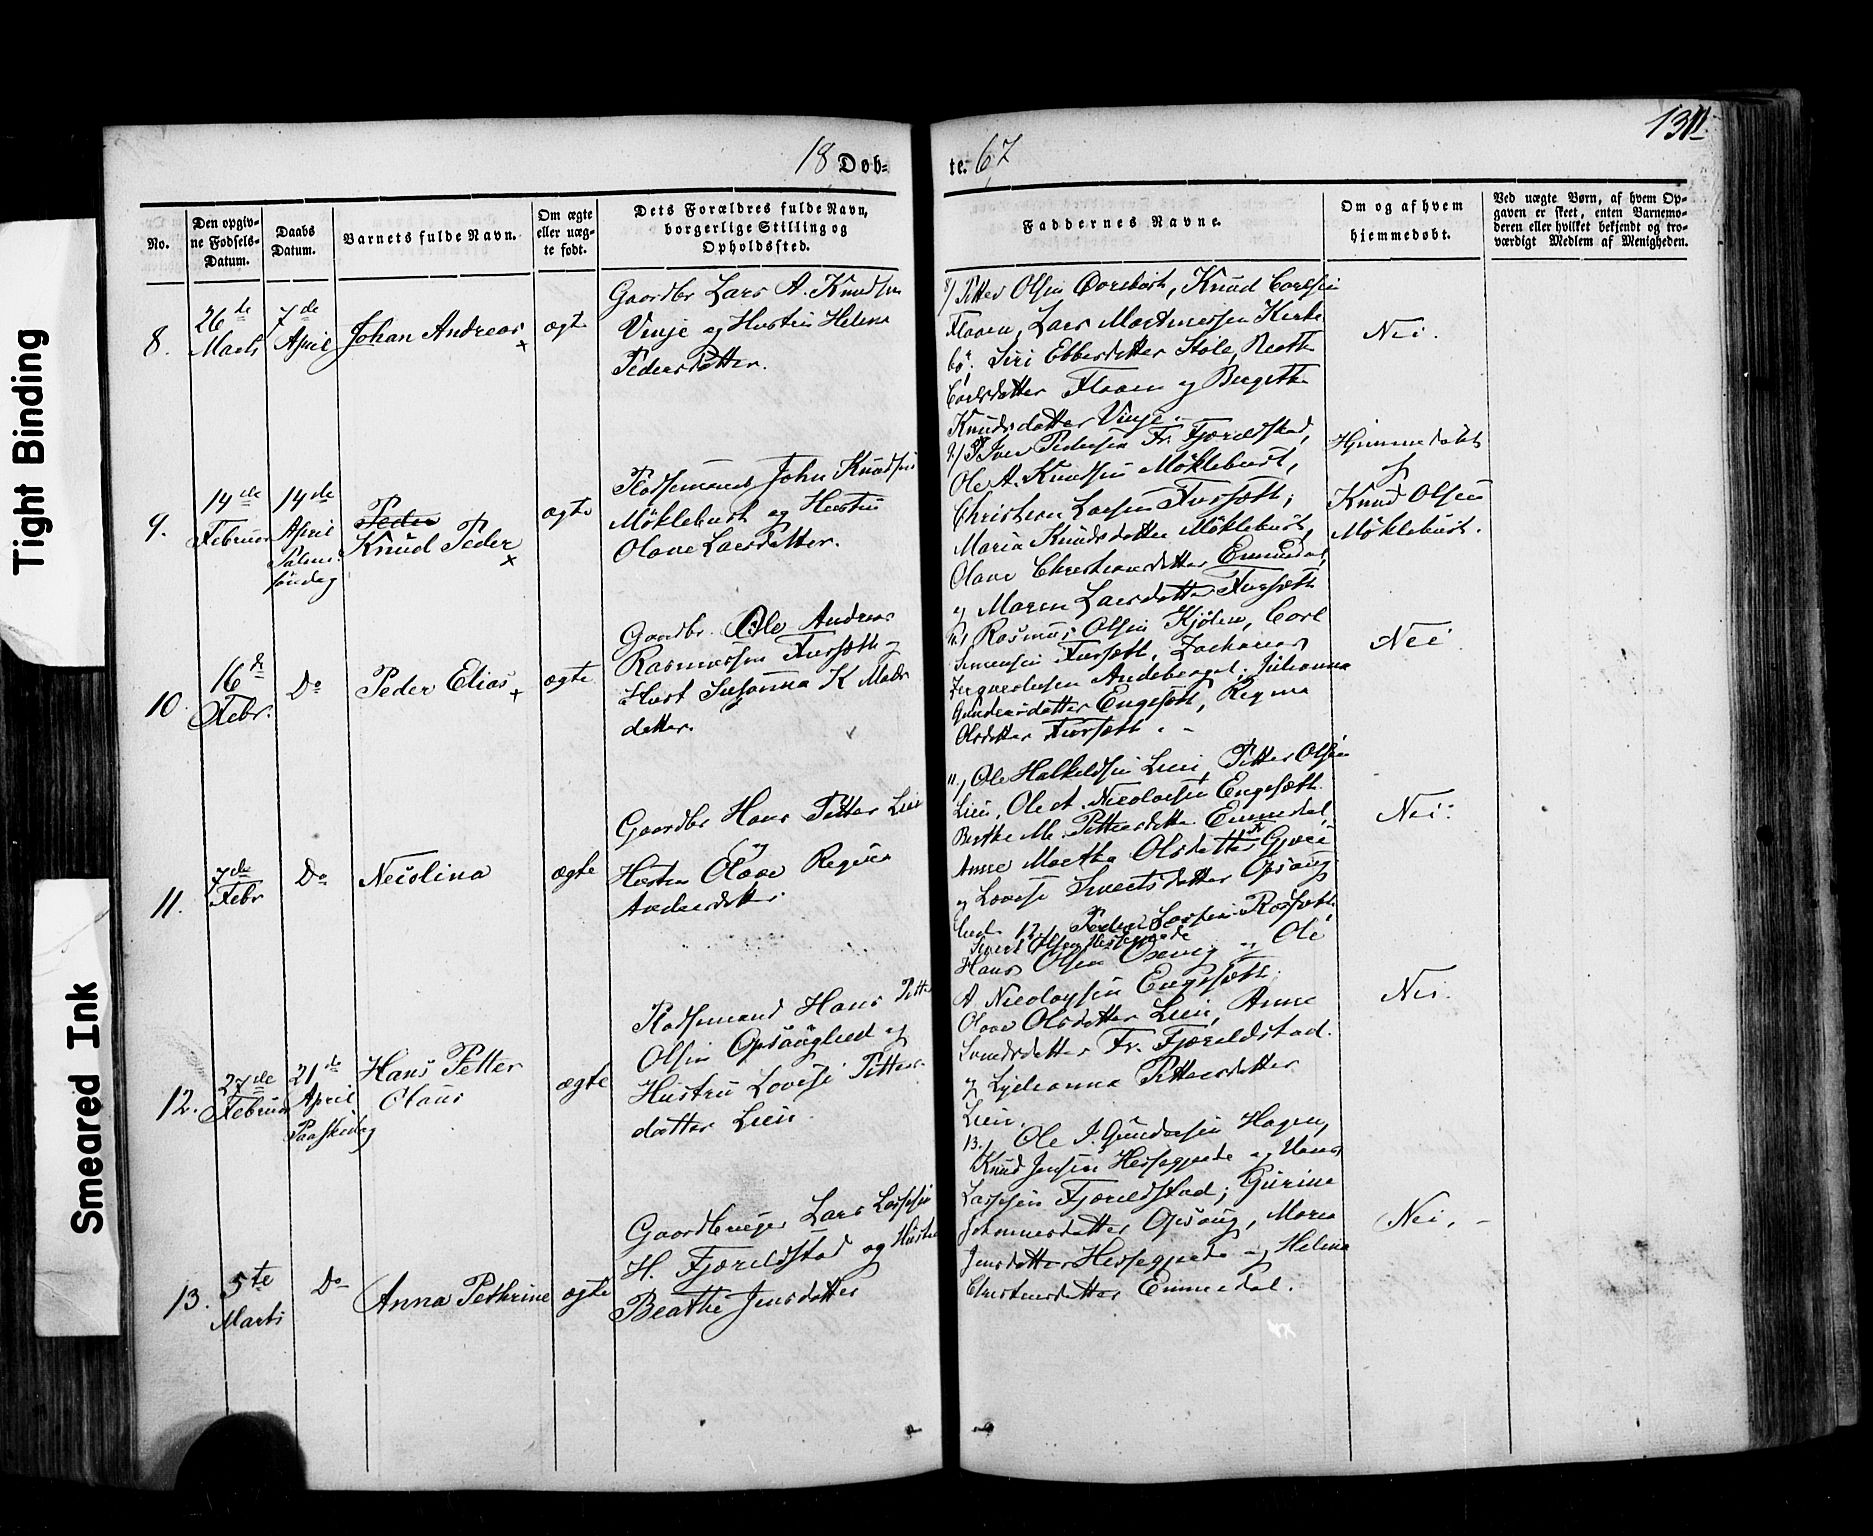 Tight Binding
Smeared Ink
18 Døb-
te. 67
131
No.
Den opgiv-
ne Fødsels-
Datum.
Daabs
Datum.
Barnets fulde Navn.
Om ægte
eller uæg-
te født.
Dets Forældres fulde Navn,
borgerlige Stilling og
Opholdssted.
Faddernes Navne.
Om og af hvem
hjemmedøbt.
Ved uægte Børn, af hvem Op-
gaven er skeet, enten Barnemo-
deren eller hvilket bekjendt og tro-
værdigt Medlem af Menigheden.
8.
26de
Marts
7de
April
Johan Andreas
ægte
Gaardbr Lars A. Knudsen
Vinje og Hustru Helena
Pedersdatter.
8/ Petter Olsen, Knud Carlsen
Flaaen, Lars Martinussen Kirke
bø; Siri Ebbesdatter Støle, Berthe
Carlsdatter Flaaen og Bergithe
Knudsdatter Vinje.
Nei.
9.
14de
Februar
14de
April
Palme
søndag
Peder
Knud Peder
ægte
Pladsemand John Knudsen
Møklebust og Hustru
Olave Larsdatter.
9/ Iver Pedersen Fr. Fjæreldstad,
Ole A. Knudsen Møklebust,
Christian Larsen Fursæth;
Maria Knudsdatter Møklebust,
Olave Christiansdatter Emmedal,
og Maren Larsdatter Fursæth
Hjemmedøbt
af
Knud Olsen
Møklebust.
10.
16de
Febr.
Do
Peder Elias
ægte
Gaardbr. Ole Andreas
Rasmussen Fursæth og
Hust Susanna K Mads
datter.
10/ Rasmus Olsen Kjølen, Carl
Simensen Fursæth, Zacharias
Andeberget; Julianna
Gundersdatter Engesæth, Regina
Olsdatter Fursæth.
Nei
11.
7de
Febr
Do
Nicolina
ægte
Gaardbr Hans Petter Lien
og
Hustru Olave Regina
Andersdatter
11/ Ole Halkeldsen Lien, Petter Olsen
Lien, Ole A. Nicolaisen Engesæth
Berthe M. Pettersdatter Emmedal,
Anne Martha Olsdatter
og Lovise Sivertsdatter Opsaug
lied. 12/ Peder Larsen
Sivert Olsen Hessegjerde
Hans Olsen og Ole
A Nicolaysen Engesæth.
Olave Olsdatter Lien, Anne
Fr. Fjæreldstad.
og Lydianna Pettersdatter
Lien.
Nei.
Nei.
12.
27de
Februar
21de
April
Paaskedag
Hans Petter
Olaus
ægte
Pladsemand Hans Petter
Olsen Opsauglied og
Hustru Lovise Petters-
datter Lien.
13.
5te
Marts
Do
Anna Pethrine
ægte
Gaardbruger Lars Larsen
H. Fjæreldstad og Hustru
Beathe Jensdatter
13/ Ole I. Gundersen Hagen,
Knud Jensen Hessegjerde og Hans
Larsen Fjæreldstad; Gurine
Johannesdatter Opsaug, Maria
Jensdatter Hessegjerde og Helena
Christensdatter Emmedal.
Nei.